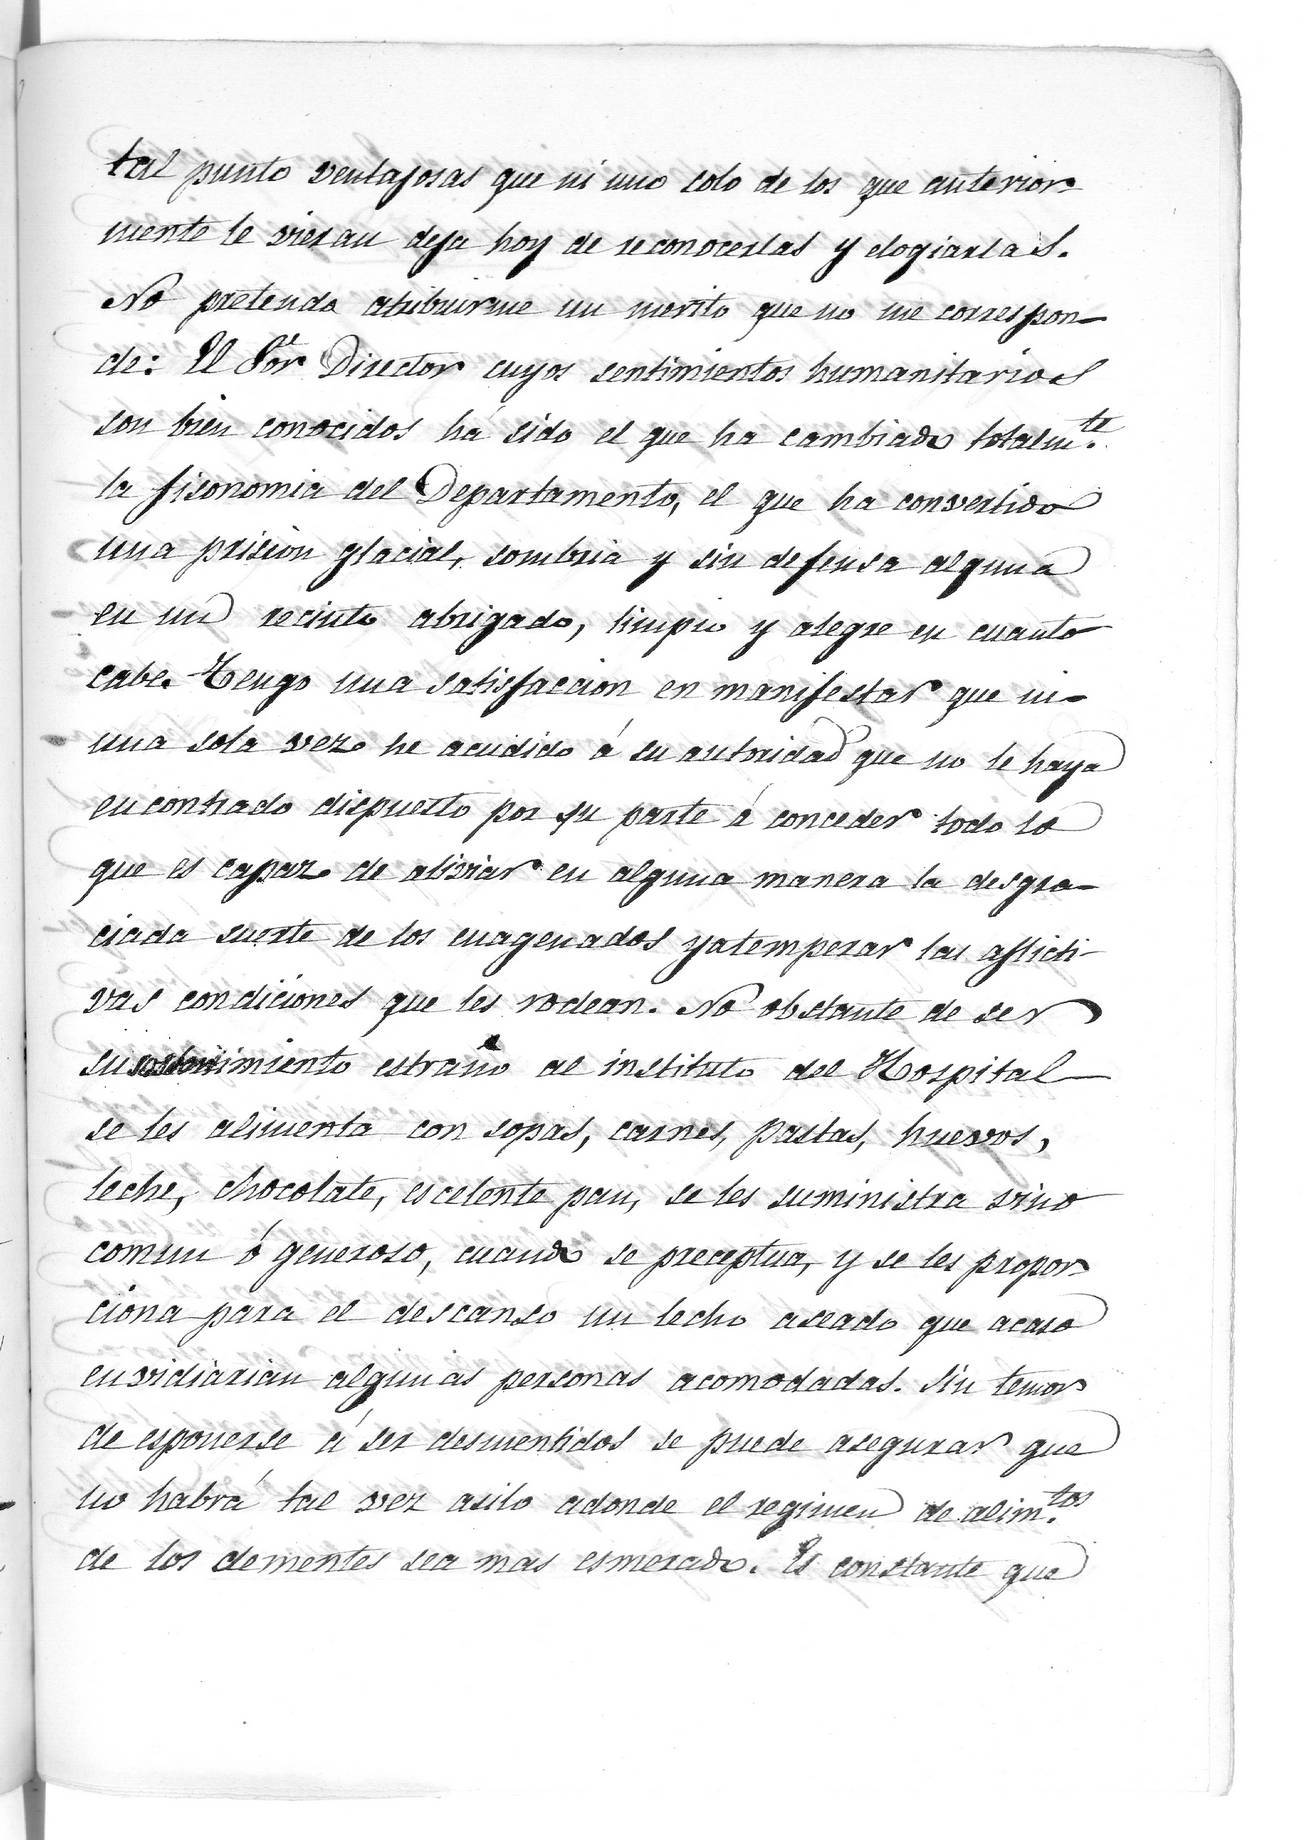 tal punto ventajosas que ni uno solo de los que anterior-
mente le vieran deja hoy de reconocerlas y elogiarlas.
No pretendo atribuirme un merito que no me correspon-
de: El Sor Director cuyos sentimientos humanitarios
son bien conocidos há sido el que ha cambiado totalm.te
la fisonomia del Departamento, el que ha convertido
una prision glacial, sombria y sin defensa alguna
en un recinto abrigado, limpio y alegre en cuanto
cabe. Tengo una satisfaccion en manifestar que ni
una sola vez he acudido á su autoridad que no le haya
encontrado dispuesto por su parte á conceder todo lo
que es capaz de aliviar en alguna manera la desgra-
ciada suerte de los enagenados y atemperar las aflicti-
vas condiciones que les rodean. No obstante de ser
su sostenimiento estraño al instituto del Hospital
se les alimenta con sopas, carnes, pastas, huevos,
leche, chocolate, escelente pan, se les suministra vino
comun ó generoso, cuando se preceptua, y se les propor-
ciona para el descanso un lecho aseado que acaso
envidiarian algunas personas acomodadas. Sin temor
de esponerse á ser desmentidos se puede asegurar que
no habrá tal vez asilo adonde el regimen de alim.tos
de los dementes sea mas esmerado. Es constante que